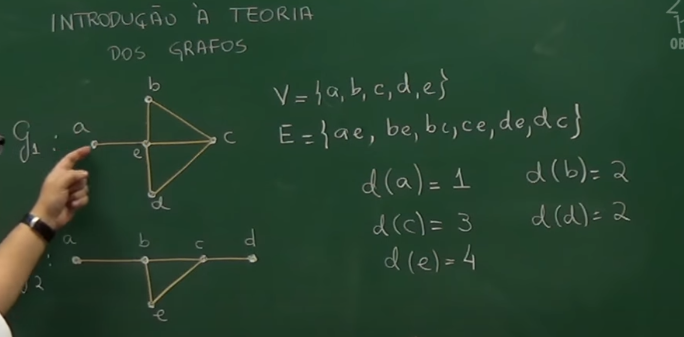 INTRODUÇÃO À TEORIA
DOS GRAFOS
G₁:
a
b
c
e
d
V={a,b,c,d,e}
E={ae, be, bc, ce, de, dc}
d(a)=1
d(b)=2
d(c)=3
d(d)=2
d(e)=4
a
b
c
d
e
2
OB